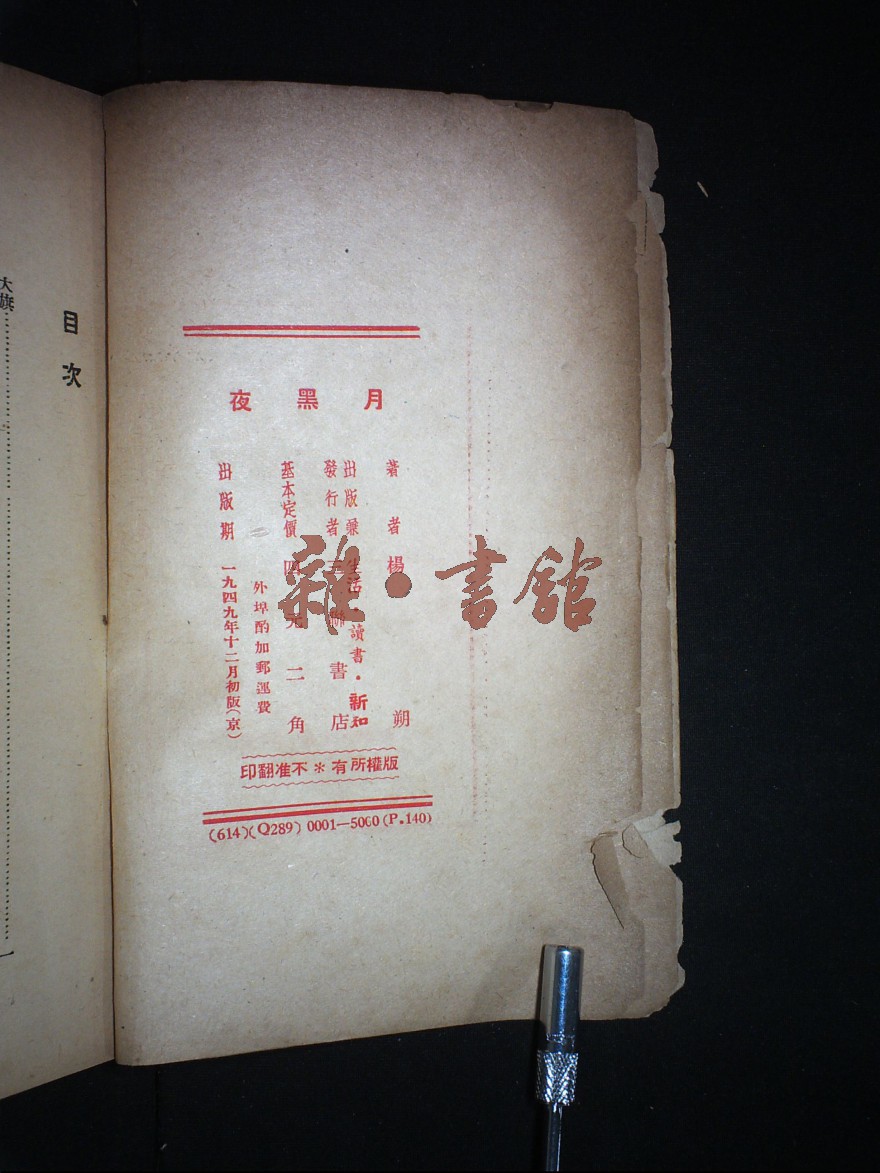 月黑夜
著者 楊朔
出版兼 生活·讀書·新知
發行者 三聯書店
基本定價 四元二角
外埠酌加郵運費
出版期 一九四九年十二月初版(京)
版權所有*不准翻印
(614)(Q289) 0001—5000(P.140)
雜·書館
目次
大旗